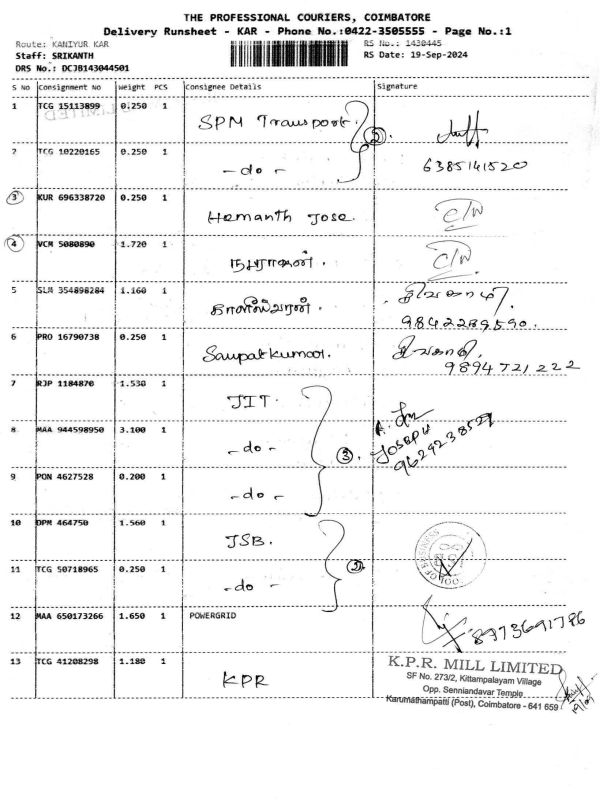 THE PROFESSIONAL COURIERS, COIMBATORE
Delivery Runsheet - KAR - Phone No.:0422-3505555 - Page No.:1
Route: KANIYUR KAR
RS No.: 1430445
Staff: SRIKANTH
RS Date: 19-Sep-2024
DRS No.: DCJB143044501
S No Consignment No Weight PCS Consignee Details Signature
1 TCG 15113899 0.250 1 SPM Transport. 2.
2 TCG 10220165 0.250 1 -do- 6385141520
3 KUR 696338720 0.250 1 Hemanth Jose. C/N
4 VCM 5080890 1.720 1 C/N
5 SLM 354898284 1.160 1 காளீஸ்வரன். சிவகாமி.
9842289590.
6 PRO 16790738 0.250 1 Sampatkumar.
9894721222
7 RJP 1184870 1.530 1 JIT.
8 MAA 944598950 3.100 1 -do- 3. JOSEPH
9629238527
9 PON 4627528 0.200 1 -do-
10 DPM 464750 1.560 1 JSB.
11 TCG 50718965 0.250 1 -do- 2.
12 MAA 650173266 1.650 1 POWERGRID 8973691786
13 TCG 41208298 1.180 1 KPR
K.P.R. MILL LIMITED
SF No. 273/2, Kittampalayam Village
Opp. Senniandavar Temple
Karumathampatti (Post), Coimbatore - 641 659